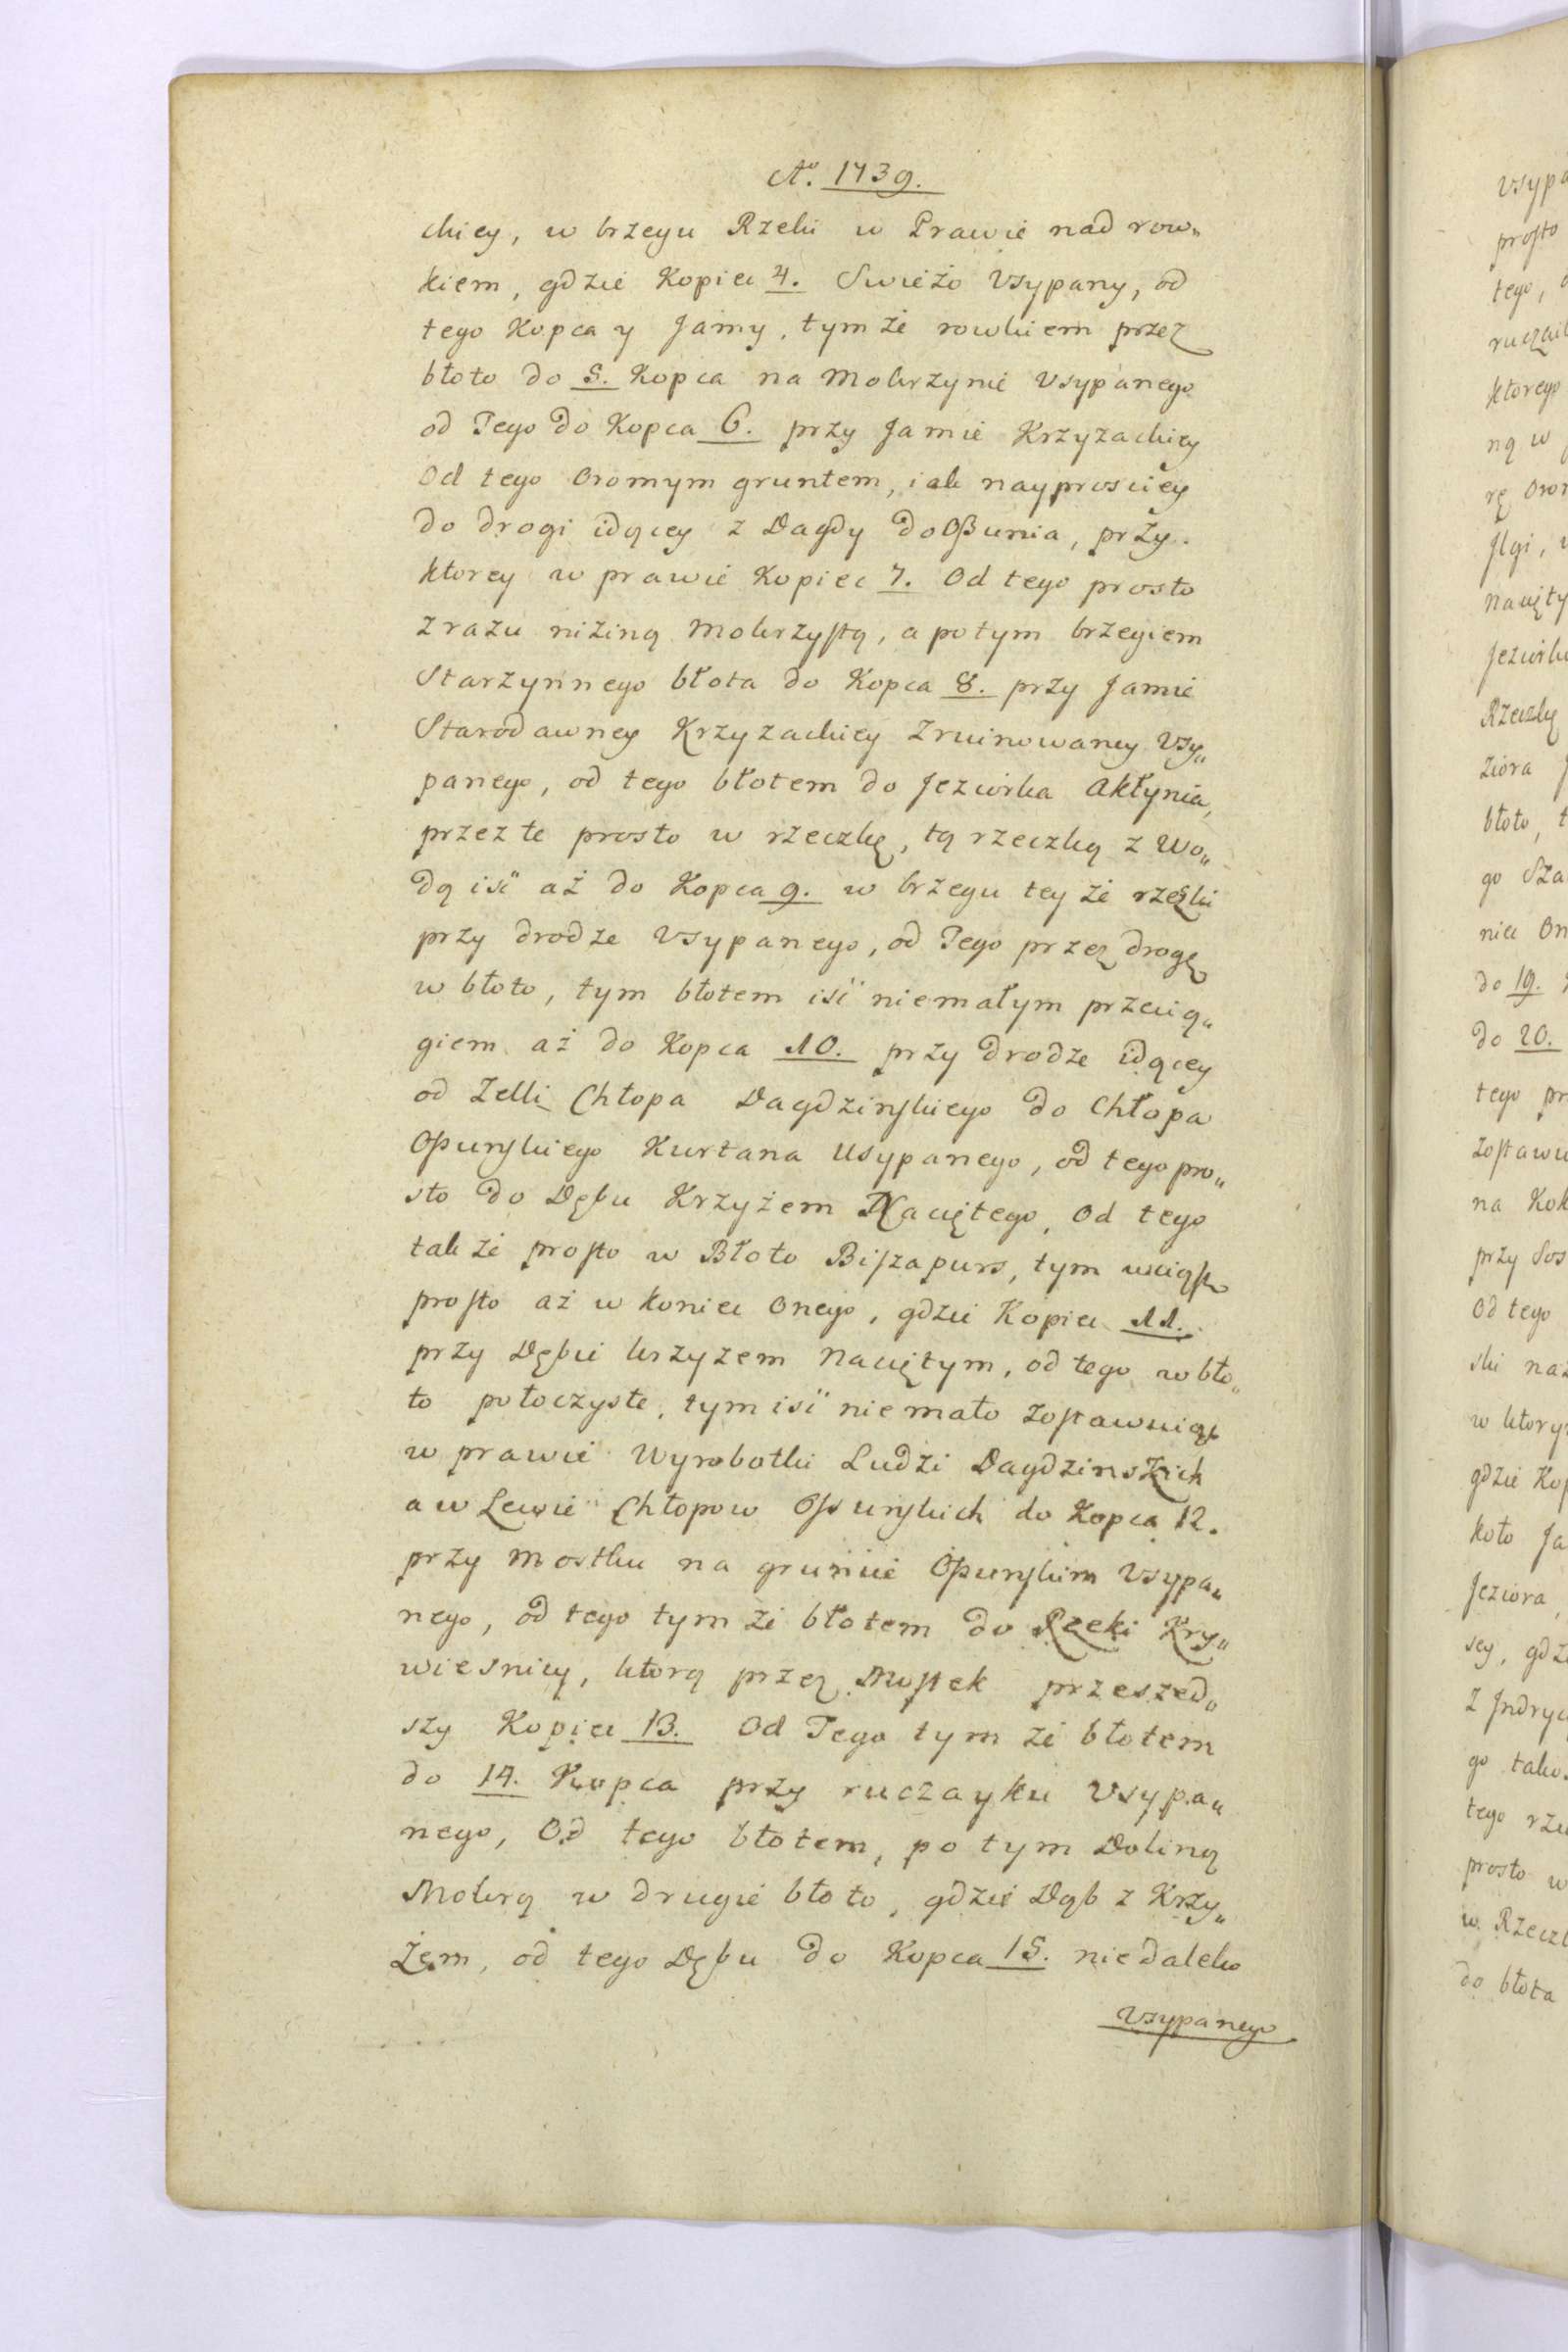 Aō. 1739.
ckiey, w brzegu Rzeki w Prawie nad row„
kiem, gdzie Kopiec 4. Swieżo Vsypany, od
tego Kopca y Jamy, tymże rowkiem przez
błoto do 5. Kopca na Mokrzynie Vsypanego
od Tego do Kopca 6. przy Jamie Krzyzackiey
Od tego Oromym gruntem, iak nayprosciey
do drogi idącey z Dagdy do Oßunia, przy
ktorey w prawie Kopiec 7. Od tego prosto
zrazu niziną Mokrzystą, a potym brzegiem
Starzynnego błota do Kopca 8. przy Jamie
Starodawney Krzyzackiey Zruinowaney Vsy„
panego, od tego błotem do Jeziorka Akłynia,
przez te prosto w rzeczkę, tą rzeczką z Wo„
dą isć aż do Kopca 9. w brzegu teyże rzeczki
przy drodze Vsypanego, od Tego przez drogę
w błoto, tym błotem isć niemałym przecią„
giem aż do Kopca 10. przy drodze idącey
od Zelli Chłopa Dagdzinskiego do Chłopa
Oßunskiego Kurtana Usypanego, od tego pro„
sto do Dębu Krzyżem Naciętego, Od tego
także prosto w Błoto Biszapurs, tym
prosto aż w koniec Onego, gdzie Kopiec 11.
przy Dębie krzyzem Naciętym, od tego w bło„
to potoczyste, tym isć niemało zostawuiąc
w prawie Wyrobotki Ludzi Dagdzinskich
a w Lewie Chłopow Oßunskich do Kopca 12.
przy Mostku na gruncie Oßunskim Vsypa„
nego, od tego tymże błotem do Rzeki Kry„
wiesnicy, ktorą przez Mostek przeszed„
szy Kopiec 13. Od Tego tymże błotem
do 14. Kopca przy ruczayku Vsypa„
nego, Od tego błotem, potym Doliną
Mokrą w drugie błoto, gdzie Dąb z Krzy„
żem, od tego Dębu do Kopca 15. niedaleko
Vsypanego
vsypa
prosto
tego,
ktorego
ną w
Jlgi,
Rzeczkę
ziora
błoto,
go
do 19.
do 20.
tego
na
przy
Od tego
ski
gdzie
koło
Jeziora,
Z
go
tego
prosto w
w
do błota